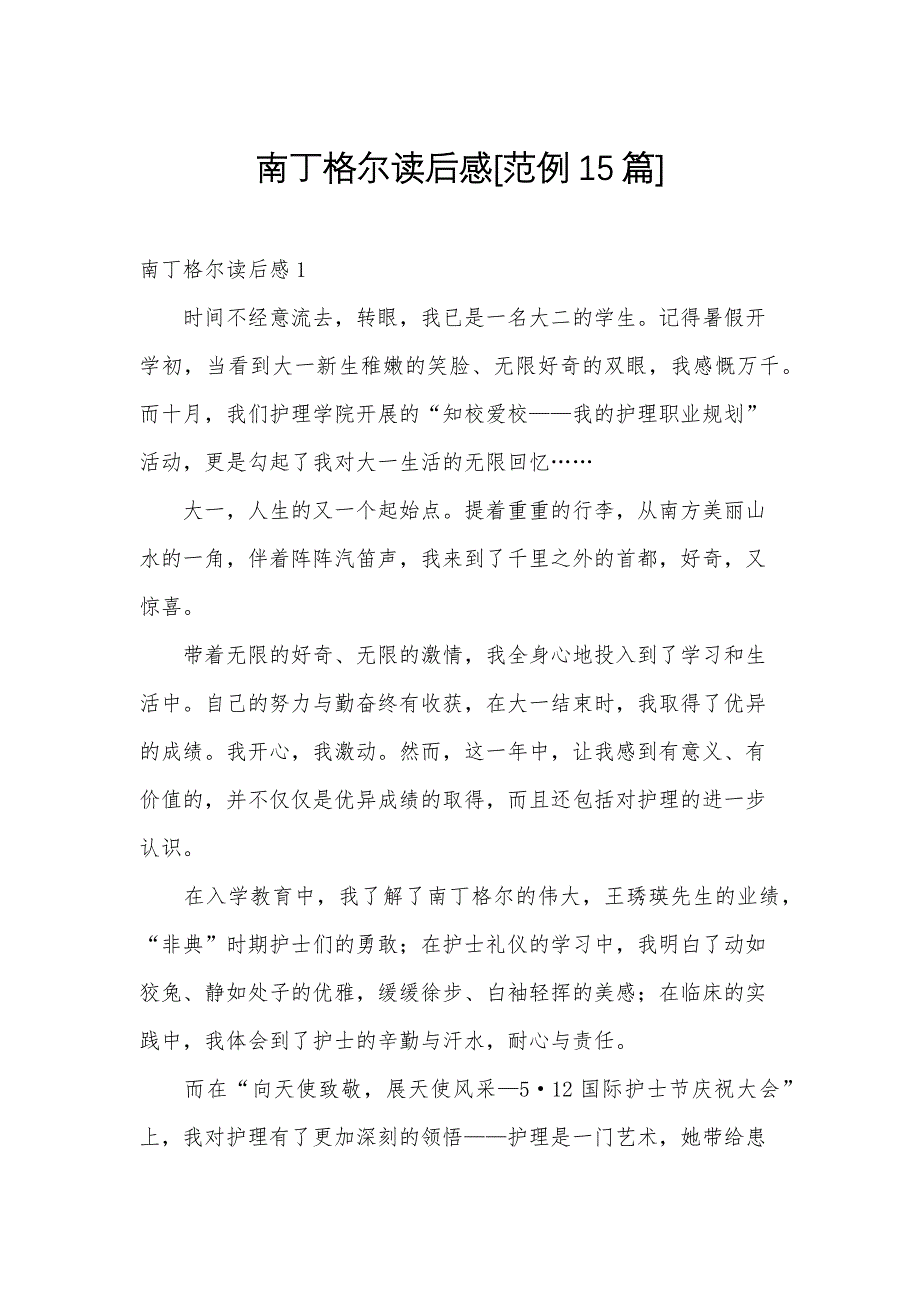 南丁格尔读后感[范例 15 篇]
南丁格尔读后感 1
时间不经意流去，转眼，我已是一名大二的学生。记得暑假开
学初，当看到大一新生稚嫩的笑脸、无限好奇的双眼，我感慨万千。
而十月，我们护理学院开展的“知校爱校——我的护理职业规划”
活动，更是勾起了我对大一生活的无限回忆……
大一，人生的又一个起始点。提着重重的行李，从南方美丽山
水的一角，伴着阵阵汽笛声，我来到了千里之外的首都，好奇，又
惊喜。
带着无限的好奇、无限的激情，我全身心地投入到了学习和生
活中。自己的努力与勤奋终有收获，在大一结束时，我取得了优异
的成绩。我开心，我激动。然而，这一年中，让我感到有意义、有
价值的，并不仅仅是优异成绩的取得，而且还包括对护理的进一步
认识。
在入学教育中，我了解了南丁格尔的伟大，王琇瑛先生的业绩，
“非典”时期护士们的勇敢；在护士礼仪的学习中，我明白了动如
狡兔、静如处子的优雅，缓缓徐步、白袖轻挥的美感；在临床的实
践中，我体会到了护士的辛勤与汗水，耐心与责任。
而在“向天使致敬，展天使风采—5·12 国际护士节庆祝大会”
上，我对护理有了更加深刻的领悟——护理是一门艺术，她带给患